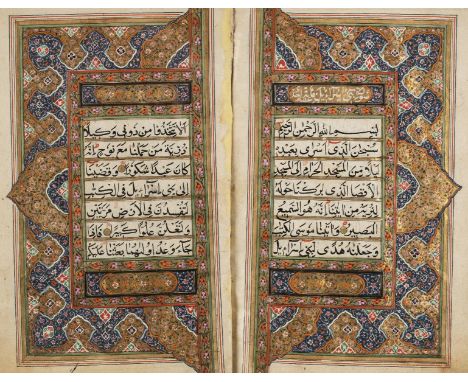 سورة بنی اسرائیل
بِسْمِ اللهِ الرَّحْمٰنِ الرَّحِيْمِ
سُبْحٰنَ الَّذِي اَسْرٰى بِعَبْدِهٖ
لَيْلًا مِنَ الْمَسْجِدِ الْحَرَامِ اِلَى الْمَسْجِدِ
الْاَقْصَا الَّذِي بٰرَكْنَا حَوْلَهُ
لِنُرِيَهُ مِنْ اٰيٰتِنَا اِنَّهُ هُوَ السَّمِيْعُ
الْبَصِيْرُ وَاٰتَيْنَا مُوْسَى الْكِتٰبَ
وَجَعَلْنٰهُ هُدًى لِبَنِي اِسْرَائِيْلَ
اَلَّا تَتَّخِذُوْا مِنْ دُوْنِي وَكِيْلًا
ذُرِّيَّةَ مَنْ حَمَلْنَا مَعَ نُوْحٍ اِنَّهُ
كَانَ عَبْدًا شَكُوْرًا وَقَضَيْنَا
اِلٰى بَنِي اِسْرَائِيْلَ فِي الْكِتٰبِ
لَتُفْسِدُنَّ فِي الْاَرْضِ مَرَّتَيْنِ
وَلَتَعْلُنَّ عُلُوًّا كَبِيْرًا فَاِذَا
جَاءَ وَعْدُ اُوْلٰهُمَا بَعَثْنَا عَلَيْكُمْ